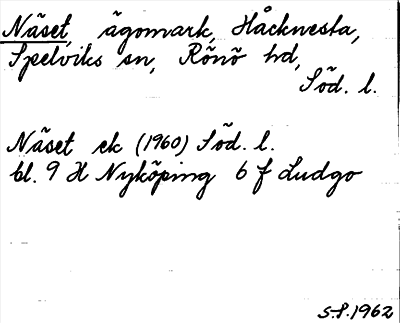 Näset, ägomark, Håcknesta,
Spelviks sn, Rönö hd,
Söd. l.
Näset ek (1960) Söd. l.
bl. 9 H Nyköping 6 f Ludgo
S.P. 1962